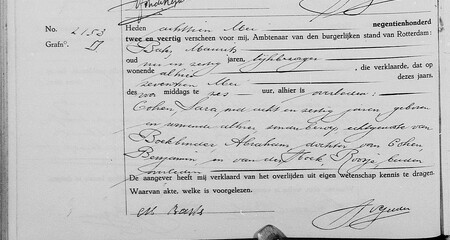 No. 2153
Grafn° II
Heden achttien Mei negentienhonderd
twee en veertig verscheen voor mij, Ambtenaar van den burgerlijken stand van Rotterdam:
Bas, Maurits
oud in zestig jaren, lijkbezorger
wonende alhier, die verklaarde, dat op
zeventien Mei dezes jaars,
des voor middags te zes uur, alhier is overleden:
Cohen, Sara, oud acht en zestig jaren, geboren
en wonende alhier, zonder beroep, echtgenoote van
Boekbinder, Abraham, dochter van Cohen,
Benjamin, en van den Hoek, Roosje, beiden
overleden
De aangever heeft mij verklaard van het overlijden uit eigen wetenschap kennis te dragen.
Waarvan akte, welke is voorgelezen.